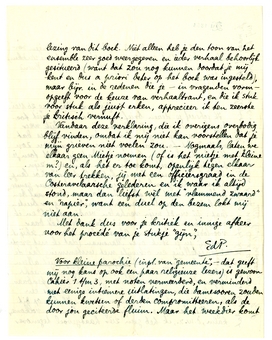 lezing van dit boek. Niet alleen heb je den toon van het
ensemble zeer goed weergegeven, en ieder verhaal behoorlijk
gesitueerd (want dat zou nog kunnen doordat je mij
kent en dus a priori beter op het boek was ingesteld),
maar bijv. in de redenen die je — in vragenden vorm —
opgeeft voor de keuze van verhaaltrant, en die ik stuk
voor stuk als juist erken, apprecieer ik ten zeerste
je kritisch vernuft.
Vandaar deze verklaring, die ik overigens overbodig
blijf vinden, omdat ik mij niet kan voorstellen dat je
mijn grieven niet voelen zou. — Nogmaals, laten we
elkaar geen Mietje noemen (of is het mietje met kleine
m?) en als het er toe komt, openlijk tegen elkaar
van leer trekken, jij met een officiersgraad in de
Costervaarbasche gelederen en ik waar ik altijd
stond, maar dan liefst wèl met "vlammend zwaard"
en "rapier", want een duel op den bezem lokt mij
niet aan.
Met dank dus voor je kritiek en innige afkeer
voor het procédé van je stukje "zijn",
EdP.
Voor kleine parochie (inpl. van "gemeente", — dat geeft
mij nog kans op ook een paar religieuze lezers) is gewoon
Cahiers 1 t/m 3, met noten vermeerderd, en verminderd
met eenige intiemere uitlatingen, die
kunnen kwetsen of derden compromitteeren, als de
door jou geciteerde fluim. Maar het werkdier komt